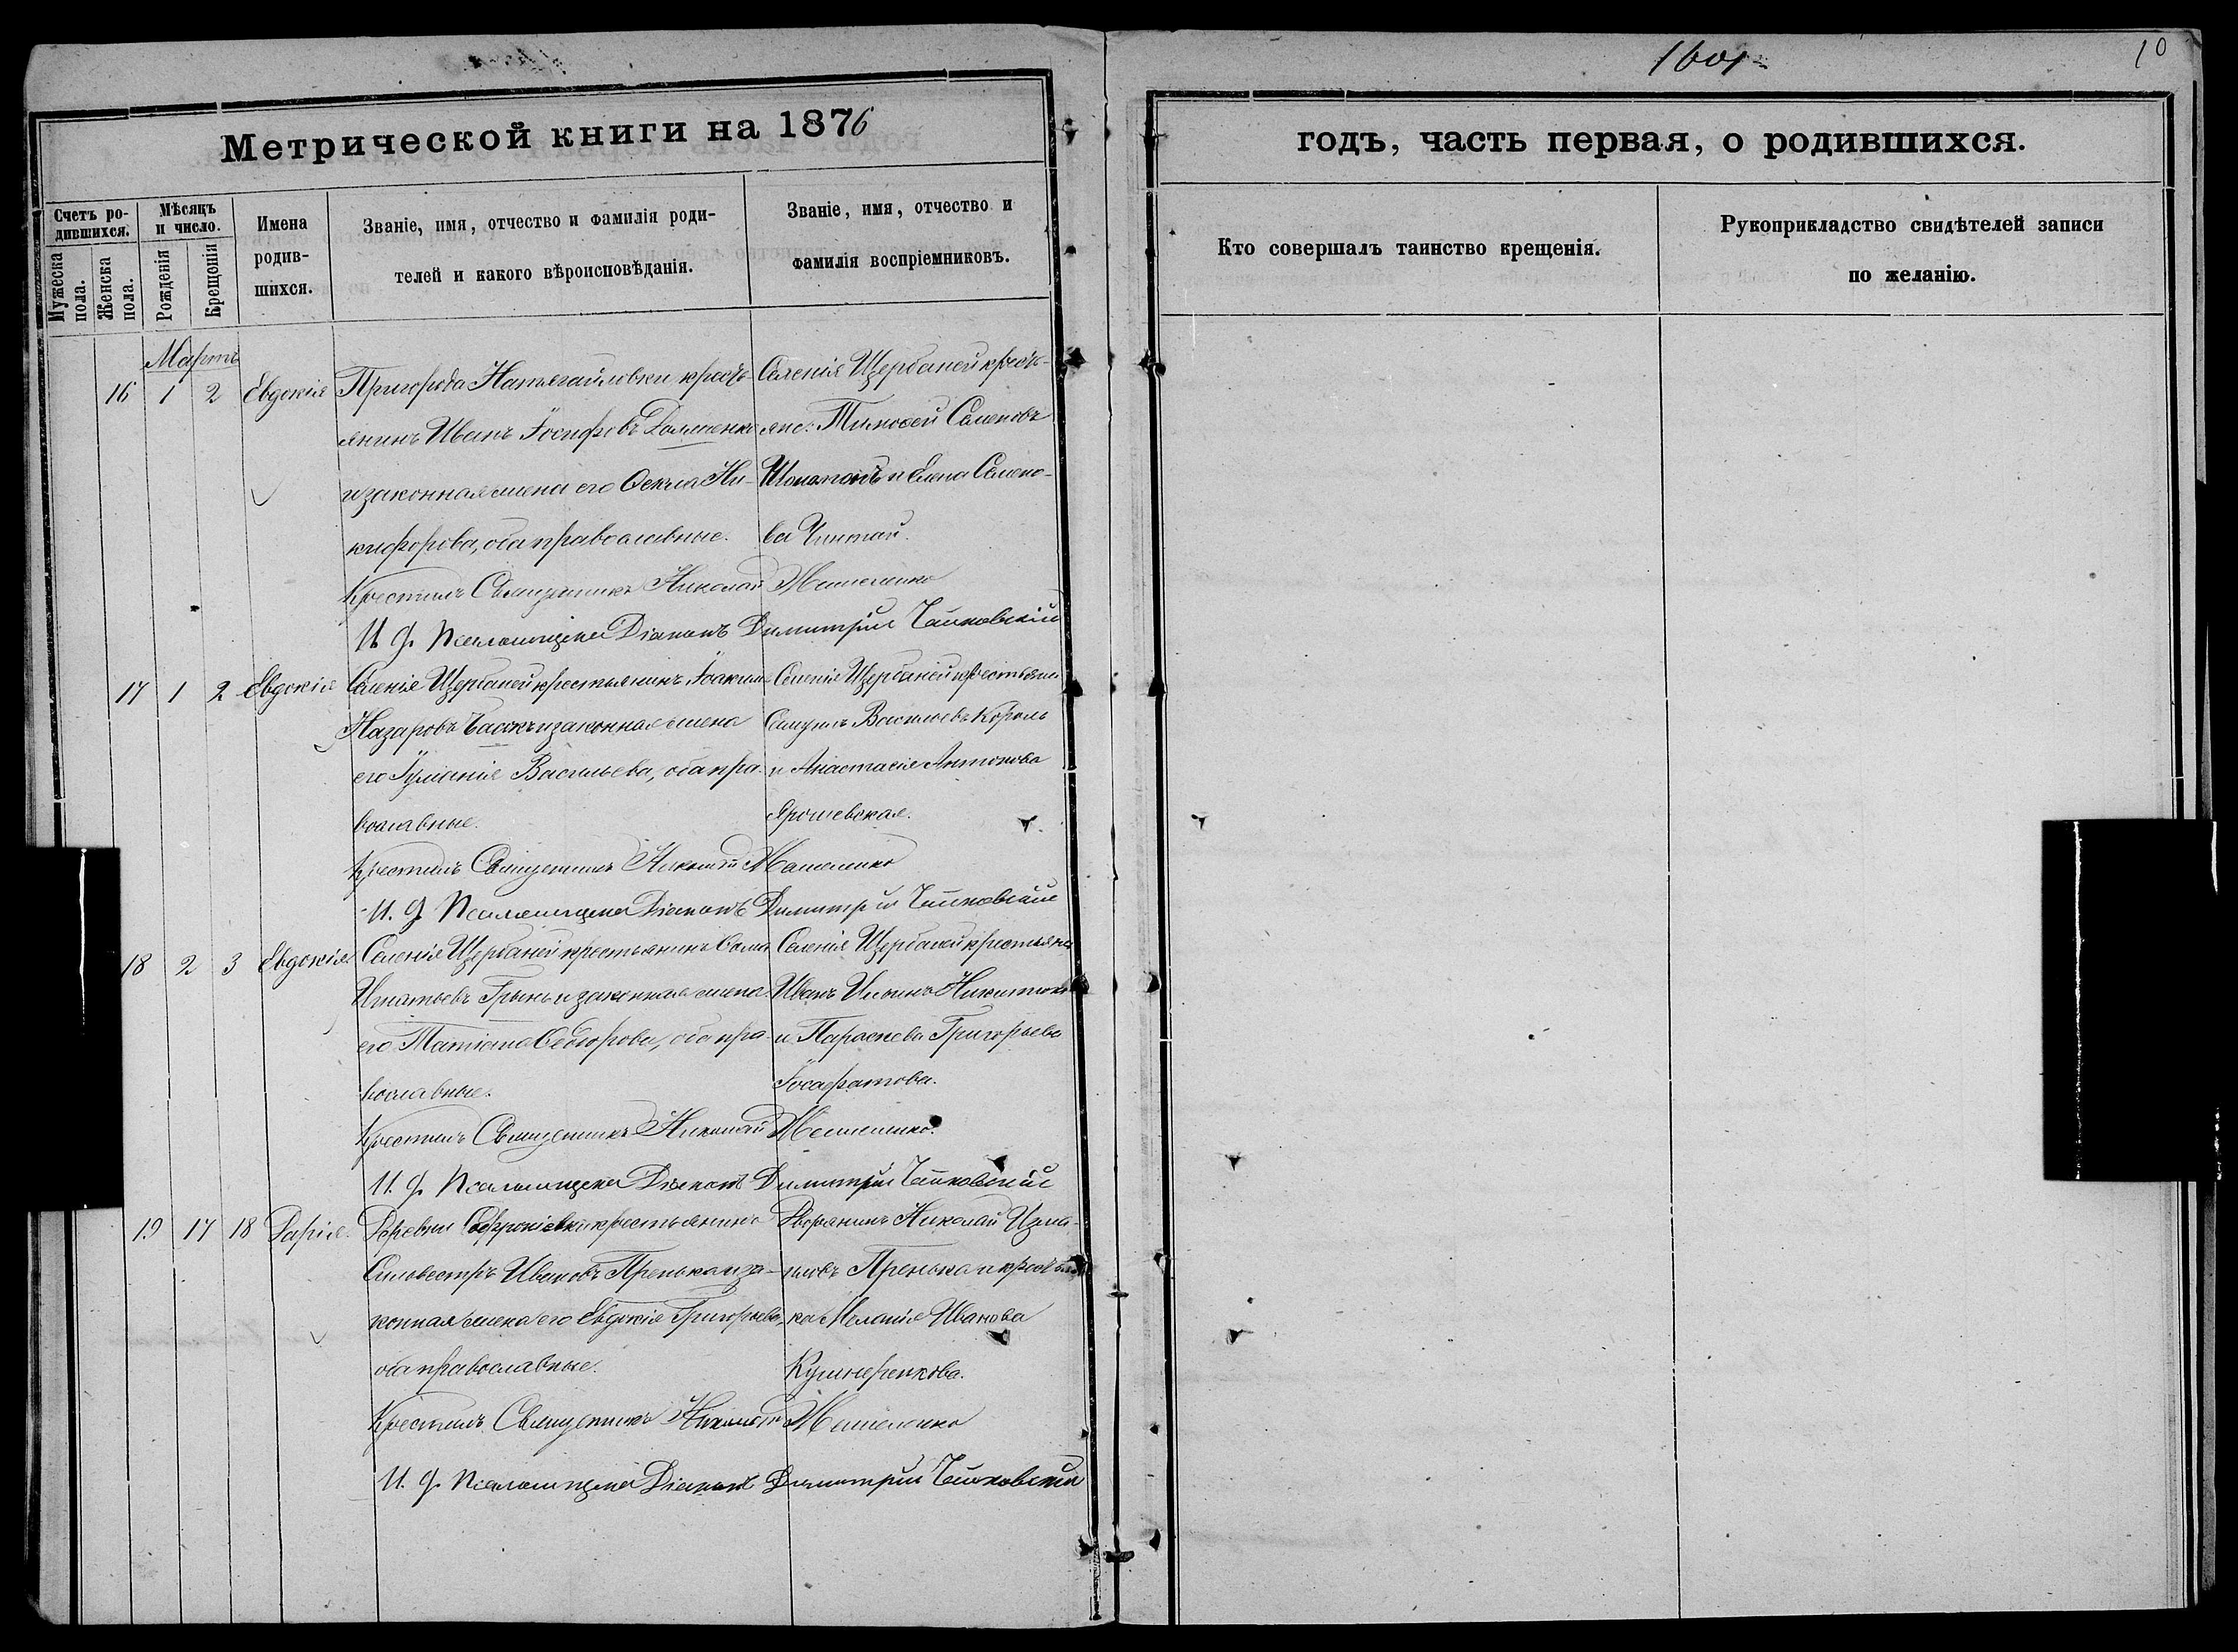 10
Метрической книги на 1876
годъ, часть первая, о родившихся.
Счетъ ро-
дившихся.
Мужеска пола.
Женска пола.
Мѣсяцъ
и число.
Рожденія
Крещенія
Имена
родив-
шихся.
Званіе, имя, отчество и фамилія роди-
телей и какого вѣроисповѣданія.
Званіе, имя, отчество и
фамилія воспріемниковъ.
Кто совершалъ таинство крещенія.
Рукоприкладство свидѣтелей записи
по желанію.
Мартъ
16 1 2 Евдокія Пригорода Натягайловки кресть- Селенія Щербаней кресть-
янинъ Иванъ Іосифовъ яне: Тимоѳей Семеновъ
и законная жена его Ѳекла Ни- и Елена Семено-
кифорова, оба православные. ва
Крестилъ Священникъ Николай
И. д. Псаломщика Діаконъ Димитрій Чайковскій
17 1 2 Евдокія Селенія Щербаней крестьянинъ Іоакимъ Селенія Щербаней крестьяне
Назаровъ и законная жена Самуилъ Васильевъ Король
его Іуліанія Васильева, оба пра- и Анастасія Антонова
вославные. Ярошевская.
Крестилъ Священникъ Николай
И. д. Псаломщика Діаконъ Димитрій Чайковскій
18 2 3 Евдокія Селенія Щербаней крестьянинъ Савва Селенія Щербаней крестьяне
Игнатьевъ Гринь и законная жена Иванъ Ильинъ
его Татіана Ѳедорова, оба пра- и Параскева Григорьева
вославные. Іосафатова.
Крестилъ Священникъ Николай
И. д. Псаломщика Діаконъ Димитрій Чайковскій
19 17 18 Дарія. Деревни Софроніевки крестьянинъ Дворянинъ Николай
Сильвестръ Ивановъ Пренька и за- Пренька и крестьян-
конная жена его Евдокія Григорьева, ка Меланія Иванова
оба православные. Кушнеренкова.
Крестилъ Священникъ Николай
И. д. Псаломщика Діаконъ Димитрій Чайковскій